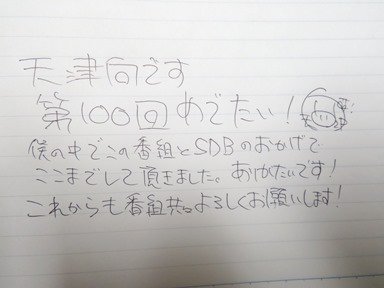 天津向です
第100回めでたい！
僕の中でこの番組とSDBのおかげで
ここまでして頂きました。ありがたいです！
これからも番組共々よろしくお願いします！